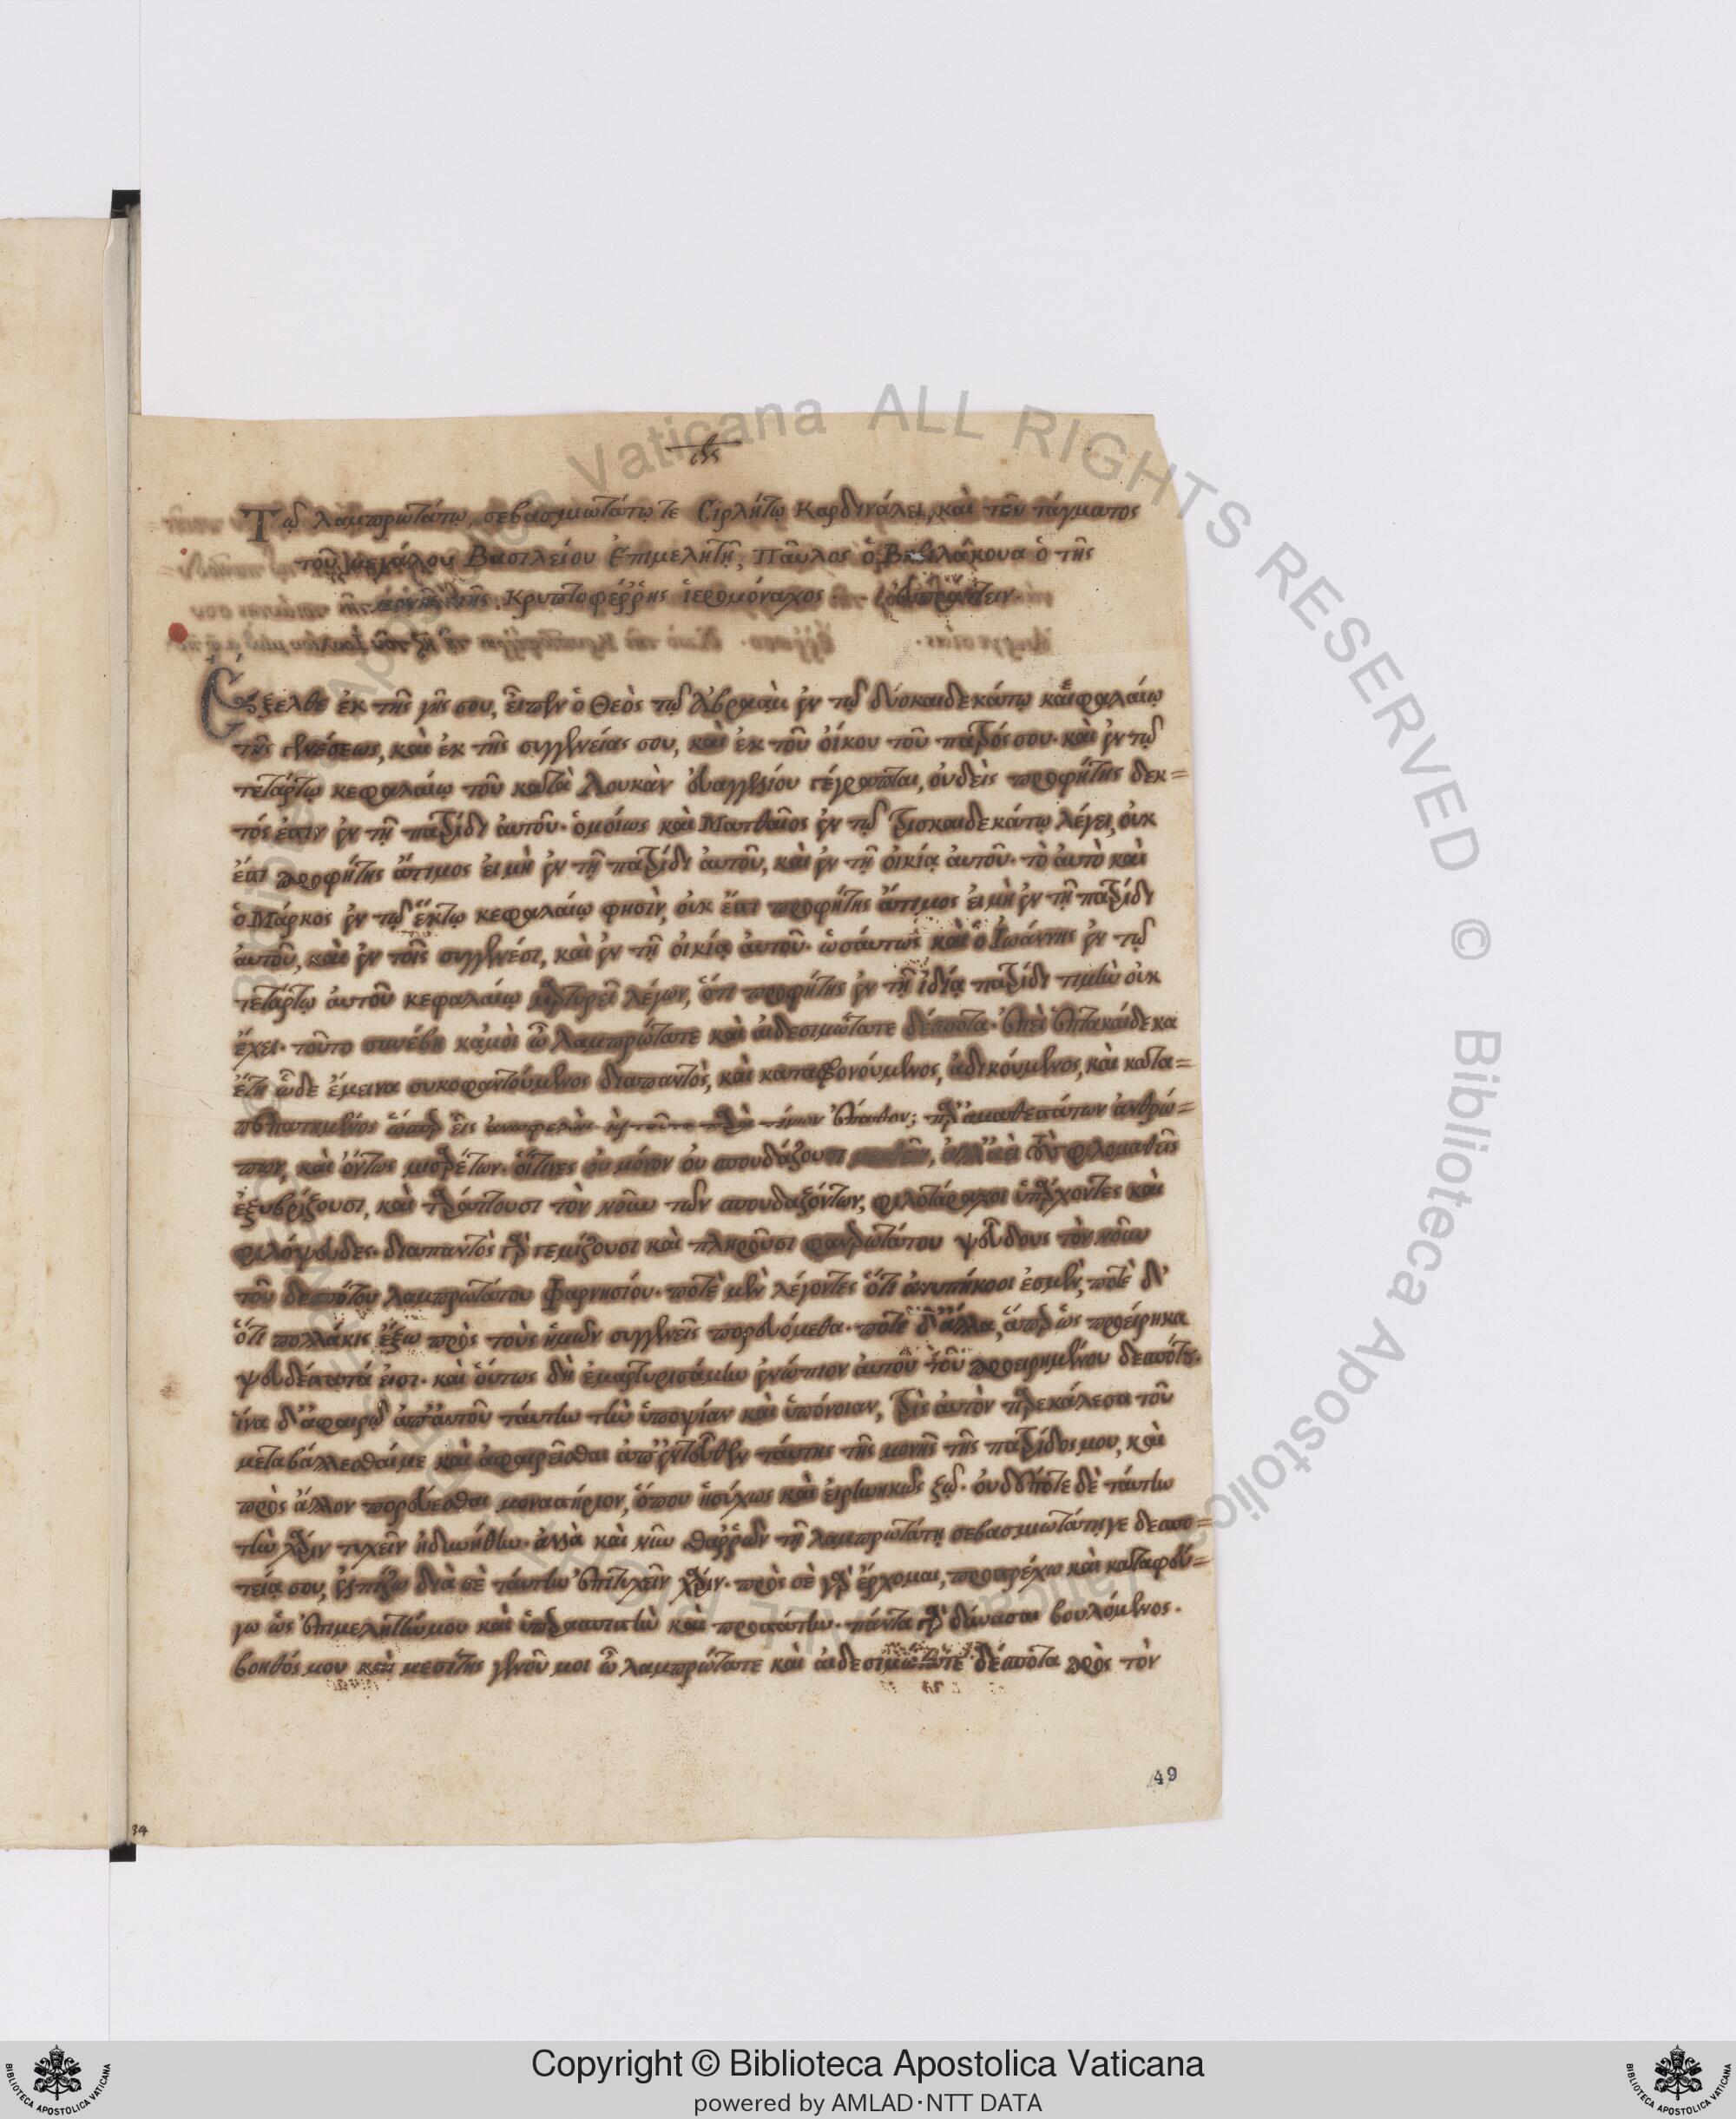 ιης
Τῷ λαμπρωτάτῳ, σεβασμιωτάτῳ τε Σιρλήτῳ Καρδινάλει, καὶ τοῦ τάγματος
τοῦ μεγάλου Βασιλείου Ἐπιμελητῇ, Παῦλος ὁ Βεβιλάκουα ὁ τῆς
μονῆς τῆς Κρυπτοφέῤῥης ἱερομόναχος
Ἔξελθε ἐκ τῆς γῆς σου, εἶπεν ὁ Θεὸς τῷ Ἀβραὰμ ἐν τῷ δυοκαιδεκάτῳ κεφαλαίῳ
τῆς γενέσεως, καὶ ἐκ τῆς συγγενείας σου, καὶ ἐκ τοῦ οἴκου τοῦ πατρός σου. καὶ ἐν τῷ
τετάρτῳ κεφαλαίῳ τοῦ κατὰ Λουκὰν εὐαγγελίου γέγραπται, οὐδεὶς προφήτης δεκ=
τός ἐστιν ἐν τῇ πατρίδι αὐτοῦ. ὁμοίως καὶ Ματθαῖος ἐν τῷ τρισκαιδεκάτῳ λέγει, οὐκ
ἔστι προφήτης ἄτιμος εἰ μὴ ἐν τῇ πατρίδι αὐτοῦ, καὶ ἐν τῇ οἰκίᾳ αὐτοῦ. τὸ αὐτὸ καὶ
ὁ Μάρκος ἐν τῷ ἕκτῳ κεφαλαίῳ φησὶν, οὐκ ἔστι προφήτης ἄτιμος εἰ μὴ ἐν τῇ πατρίδι
αὐτοῦ, καὶ ἐν τοῖς συγγενέσι, καὶ ἐν τῇ οἰκίᾳ αὐτοῦ. ὡσάυτως καὶ ὁ Ἰωάννης ἐν τῷ
τετάρτῳ αὐτοῦ κεφαλαίῳ μαρτυρεῖ λέγων, ὅτι προφήτης ἐν τῇ ἰδίᾳ πατρίδι τιμὴν οὐκ
ἔχει. τοῦτο συνέβη κᾀμοὶ ὦ λαμπρώτατε καὶ αἰδεσιμώτατε δέσποτα. ἐπεὶ ἑπτακαίδεκα
ἔτη ὧδε ἔμεινα συκοφαντούμενος διαπαντὸς, καὶ καταφρονούμενος, ἀδικούμενος, καὶ κατα=
πεπατημένος ὥσπερ εἷς ἀνωφελὴς. καὶ τοῦτο παρὰ τίνων ἔπαθον; παρ' ἀμαθεστάτων ἀνθρώ=
πων, καὶ ὄντως μισαρέτων. οἵτινες οὐ μόνον οὐ σπουδάζουσι μαθεῖν, ἀλλ' ἀεὶ τοὺς φιλομαθεῖς
ἐξυβρίζουσι, καὶ ταράττουσι τὸν νοῦν τῶν σπουδαζόντων, φιλοτάραχοι ὑπάρχοντες καὶ
φιλόψευδες. διαπαντὸς γὰρ γεμίζουσι καὶ πληροῦσι φανερωτάτου ψεύδους τὸν νοῦν
τοῦ δεσπότου λαμπρωτάτου Φαρνησίου. ποτὲ μὲν λέγοντες ὅτι ἀνυπήκοοι ἐσμὲν, ποτὲ δ'
ὅτι πολλάκις ἔξω πρὸς τοὺς ἡμῶν συγγενεῖς πορευόμεθα. ποτὲ δ' ἄλλα, ἅπερ ὡς προείρηκα
ψευδέστατά εἰσι. καὶ οὕτως δὴ ἐμαρτυρισάμην ἐνώπιον αὐτοῦ τοῦ προειρημένου δεσπότου.
ἵνα δ' ἀφαιρῶ ἀπ' αὐτοῦ ταύτην τὴν ὑποψίαν καὶ ὑπόνοιαν, τρὶς αὐτὸν παρεκάλεσα τοῦ
μεταβάλλεσθαί με καὶ ἀφαιρεῖσθαι ἀπ' ἐντεῦθεν ταύτης τῆς μονῆς τῆς πατρίδος μου, καὶ
πρὸς ἄλλον πορεύεσθαι μοναστήριον, ὅπου ἡσύχως καὶ εἰρηνικῶς ζῶ. οὐδέποτε δὲ ταύτην
τὴν χάριν τυχεῖν ἠδυνήθην. ἀλλὰ καὶ νῦν θαῤῥῶν τῇ λαμπρωτάτῃ σεβασμιωτάτῃγε δεσπο=
τείᾳ σου, ἐλπίζω διὰ σὲ ταύτην ἐπιτυχεῖν χάριν. πρὸς σὲ γὰρ ἔρχομαι, προστρέχω καὶ καταφεύ=
γω ὡς ἐπιμελητήν μου καὶ ὑπερασπιστὴν καὶ προστάτην. πάντα γὰρ δύνασαι βουλόμενος.
βοηθός μου καὶ μεσίτης γενοῦ μοι ὦ λαμπρώτατε καὶ αἰδεσιμώτατε δέσποτα πρὸς τὸν
49
34
Copyright © Biblioteca Apostolica Vaticana
powered by AMLAD·NTT DATA